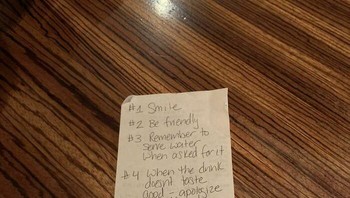 #1 Smile
#2 Be friendly
#3 Remember to
serve water
when asked for it
#4 When the drink
doesnt taste
good - apologize